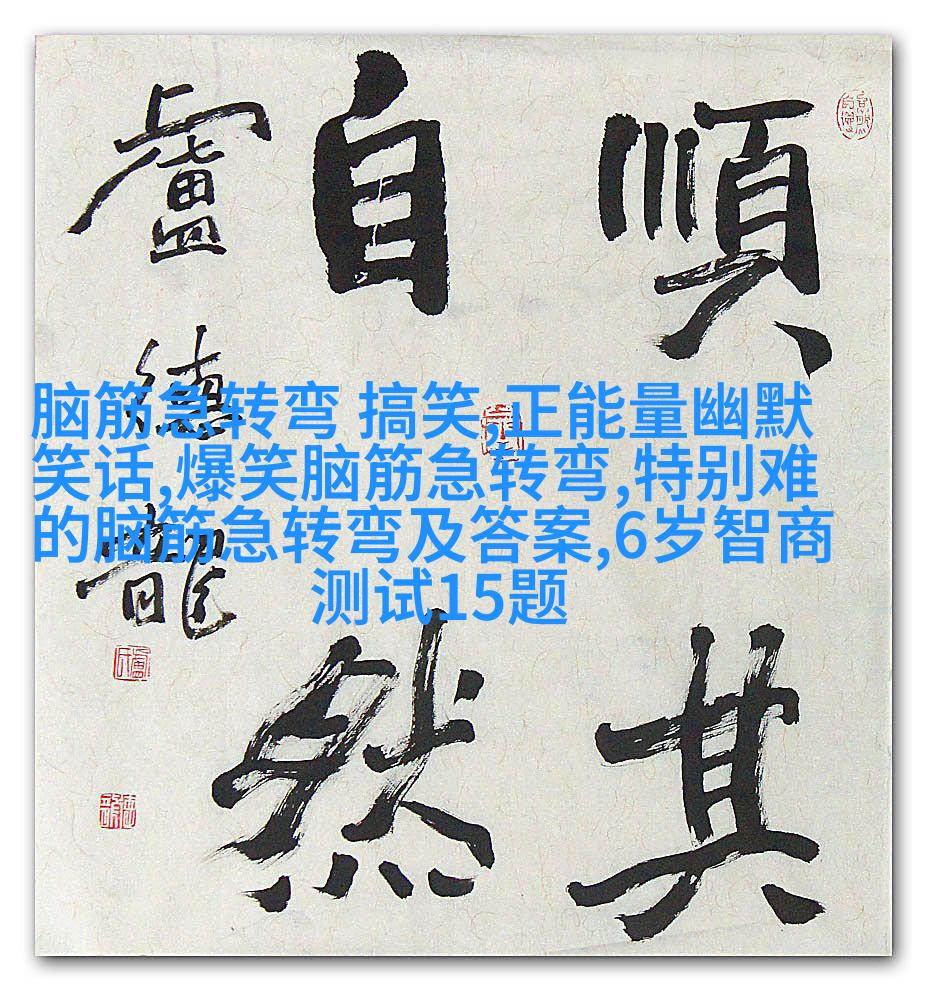 順其
自然
盧德龍
脑筋急转弯 搞笑,正能量幽默
笑话,爆笑脑筋急转弯,特别难
的脑筋急转弯及答案,6岁智商
测试15题